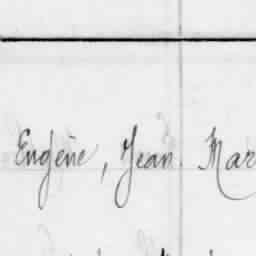 Eugène, Jean Mar